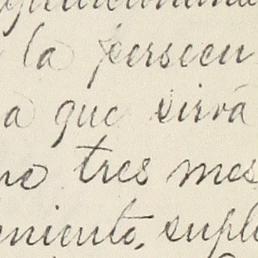 la persecu
a que sirvá
no tres mes
miento, supl